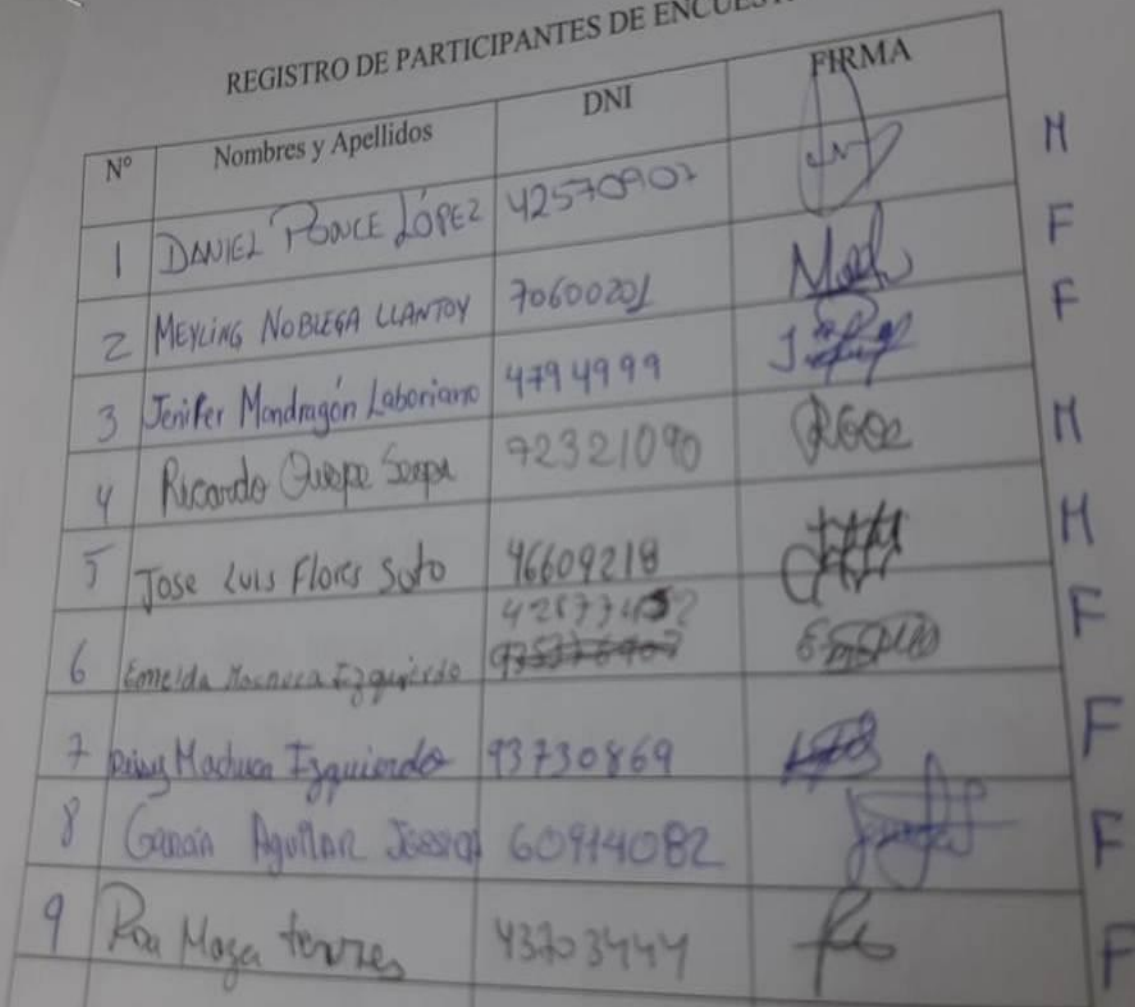 REGISTRO DE PARTICIPANTES DE ENCUEST
Nº Nombres y Apellidos DNI FIRMA
1 DANIEL PONCE LÓPEZ 42570907 M
2 MEYLING NOBLEGA LLANTOY 70600201 F
3 Jenifer Mondragón Laboriano 4794999 F
4 Ricardo Quispe 72321090 M
5 Jose Luis Flores Soto 46609218 M
6 Izquierdo F
7 Maduca Izquierdo 43730869 F
8 Aguilar 60914082 F
9 Maza torres 43703444 F